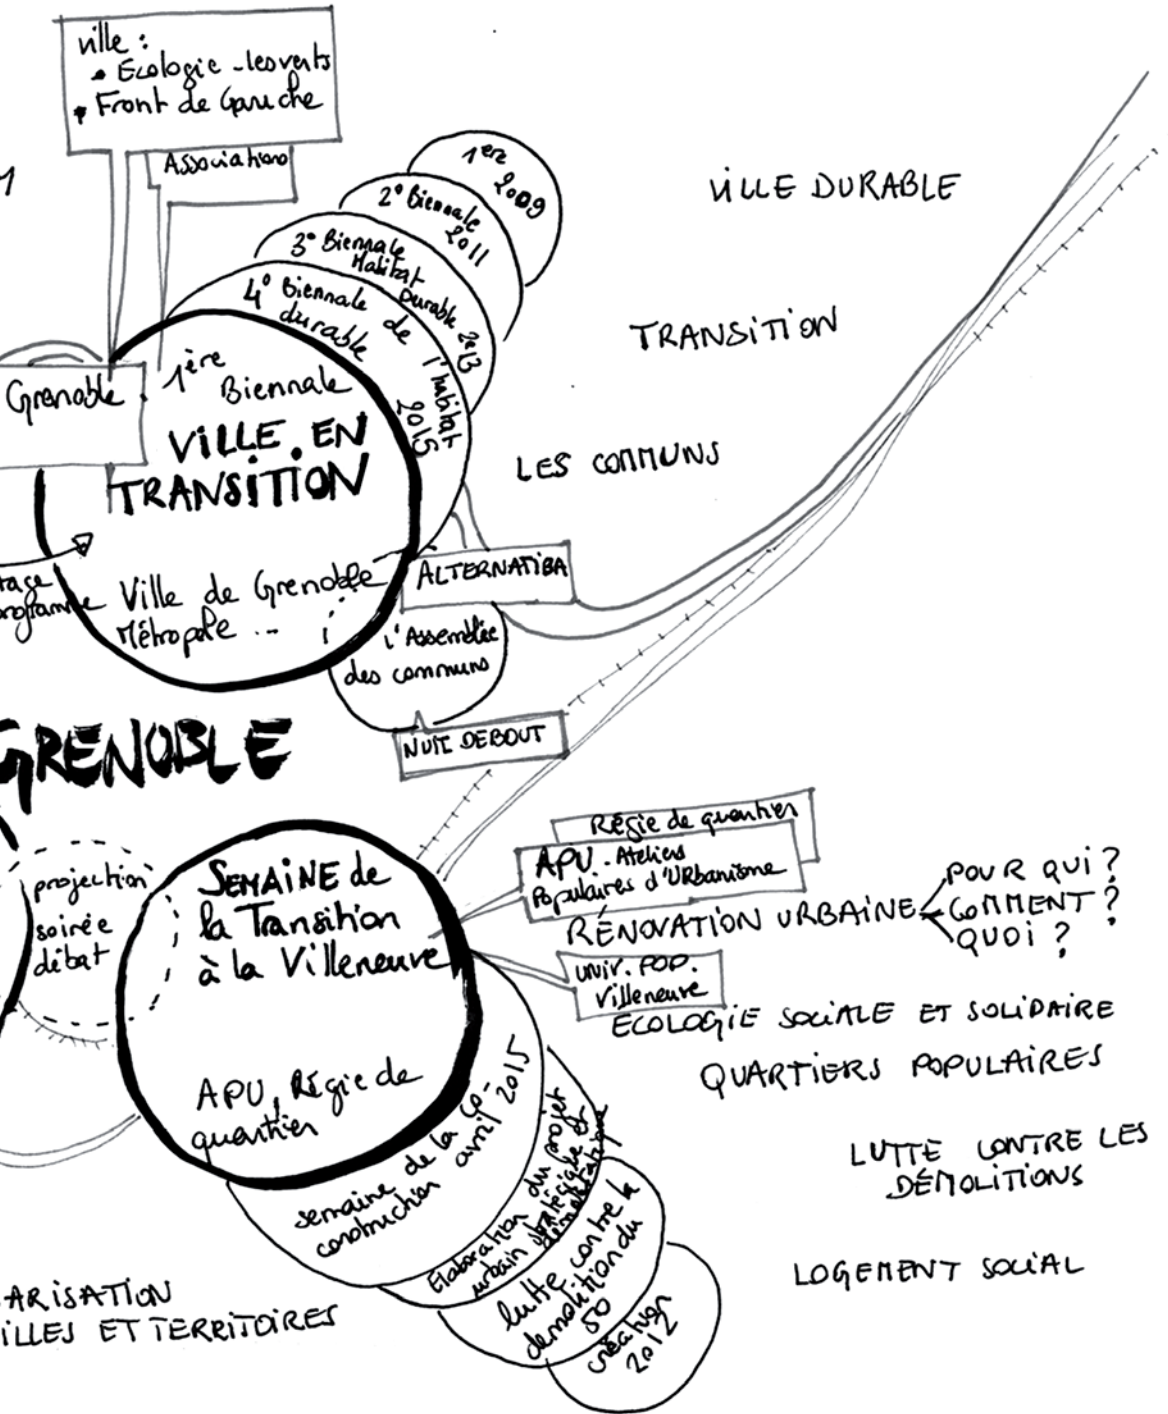 ville :
• Ecologie - les verts
• Front de Gauche
Associations
1ere
2009
2° Biennale
2011
3° Biennale
Habitat
Durable 2013
4° Biennale de l'habitat
durable
2015
VILLE DURABLE
TRANSITION
LES COMMUNS
Grenoble
1ère
Biennale
VILLE. EN
TRANSITION
Ville de Grenoble
Métropole ...
ALTERNATIBA
l'Assemblée
des communs
NUIT DEBOUT
GRENOBLE
projection
soirée
débat
SEMAINE de
la Transition
à la Villeneuve
APU, Régie de
quartier
Régie de quartier
APU - Ateliers
Populaires d'URbanisme
RÉNOVATION URBAINE
POUR QUI ?
COMMENT ?
QUOI ?
UNIV. POP.
Villeneuve
ECOLOGIE SOCIALE ET SOLIDAIRE
QUARTIERS POPULAIRES
LUTTE CONTRE LES
DÉMOLITIONS
LOGEMENT SOCIAL
semaine de la co-
construction avril 2015
Elaboration du projet
urbain stratégique et
démocratique
lutte contre la
demolition du
50
création
2012
ARISATION
ILLES ET TERRITOIRES